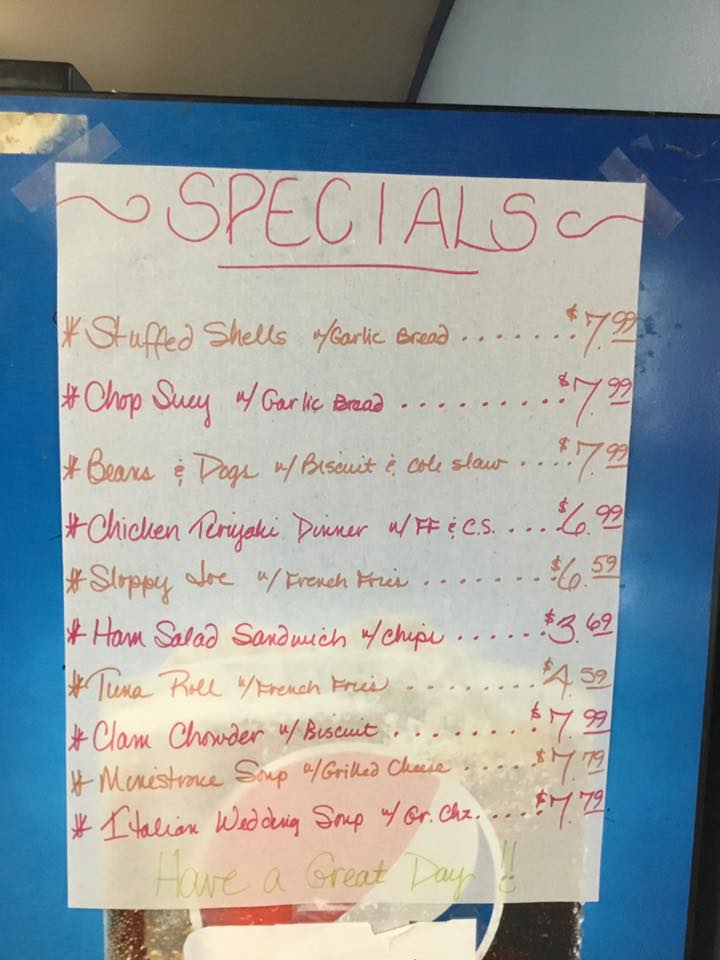 ~ SPECIALS ~
# Stuffed Shells w/Garlic Bread ....... $7.99
# Chop Suey w/ Garlic Bread ......... $7.99
# Beans & Dogs w/ Biscuit & cole slaw .... $7.99
# Chicken Teriyaki Dinner w/ FF & C.S. .... $6.99
# Sloppy Joe w/ French Fries ........ $6.59
# Ham Salad Sandwich w/chips ...... $3.69
# Tuna Roll w/French Fries ........ $4.59
# Clam Chowder w/ Biscuit ......... $7.99
# Minestrone Soup w/Grilled Cheese ...... $7.79
# Italian Wedding Soup w/ Gr. Chz. .... $7.79
Have a Great Day!!